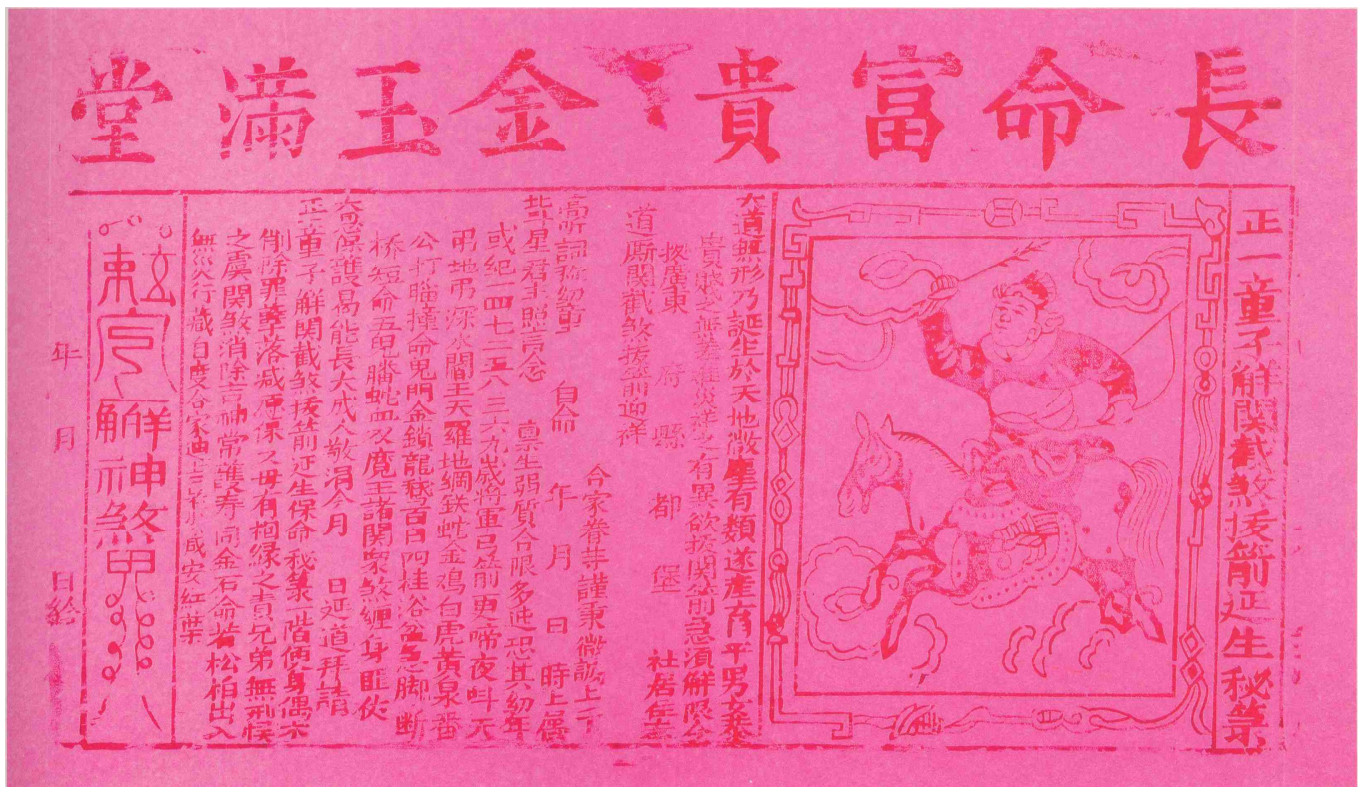 長命富貴 金玉滿堂
正一童子解關截煞援箭延生秘箓
大道無形乃誕生於天地微塵有類遂產育乎男女暴
貴賤之無差雖災祥之有異欲援関箭急須解限今
據廣東 府 縣 都 堡 社居住奉
道厮関截煞援箭迎祥
合家眷等謹秉微誠上干
高听詞称幼童 自命 年 月 日 時上屬
北斗星君主照言念 禀生弱質合限多迍恐其幼年
或紀一四七二五八三六九歲將軍日箭更啼夜叫天
弔地弔深水閻王天羅地網鉄蛇金鸡白虎黃泉番
公打腦撞命鬼門金鎖龍 百日四柱浴盆急脚断
桥短命五鬼螣蛇血刃魔王諸関衆煞纏身匪伏
 護曷能長大成人敬涓今月 日延道拜請
正一童子解関截煞援箭延生保命秘箓一階便身偶 
削除罪孽落减 保父母有抱绿之 兄弟無刑悞
之虞関煞消除吉神常護寿同金石命若松柏出入
無災行藏自慶合家 咸安紅葉
解神煞
年 月 日給